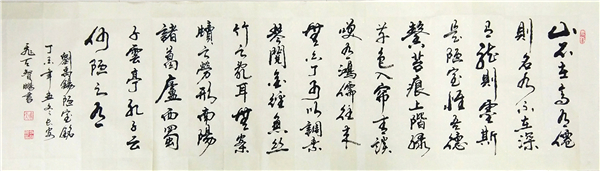 山不在高有僊
則名水不在深
有龍則靈斯
是陋室惟吾德
馨苔痕上階綠
草色入帘青談
笑有鴻儒往來
無白丁可以調素
琴閱金經無絲
竹之亂耳無案
牘之勞形南陽
諸葛廬西蜀
子雲亭孔子云
何陋之有
劉禹錫陋室銘
丁亥年
智鵬書